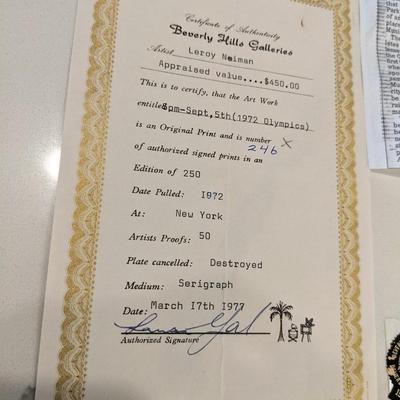 Certificate of Authenticity
Beverly Hills Galleries
Artist Leroy Neiman
Appraised value....$450.00
This is to certify, that the Art Work
entitled 8pm-Sept,5th(1972 Olympics)
is an Original Print and is number X
246
of authorized signed prints in an
Edition of 250
Date Pulled: I972
At: New York
Artists Proofs: 50
Plate cancelled: Destroyed
Medium: Serigraph
Date: March I7th I977
Authorized Signature